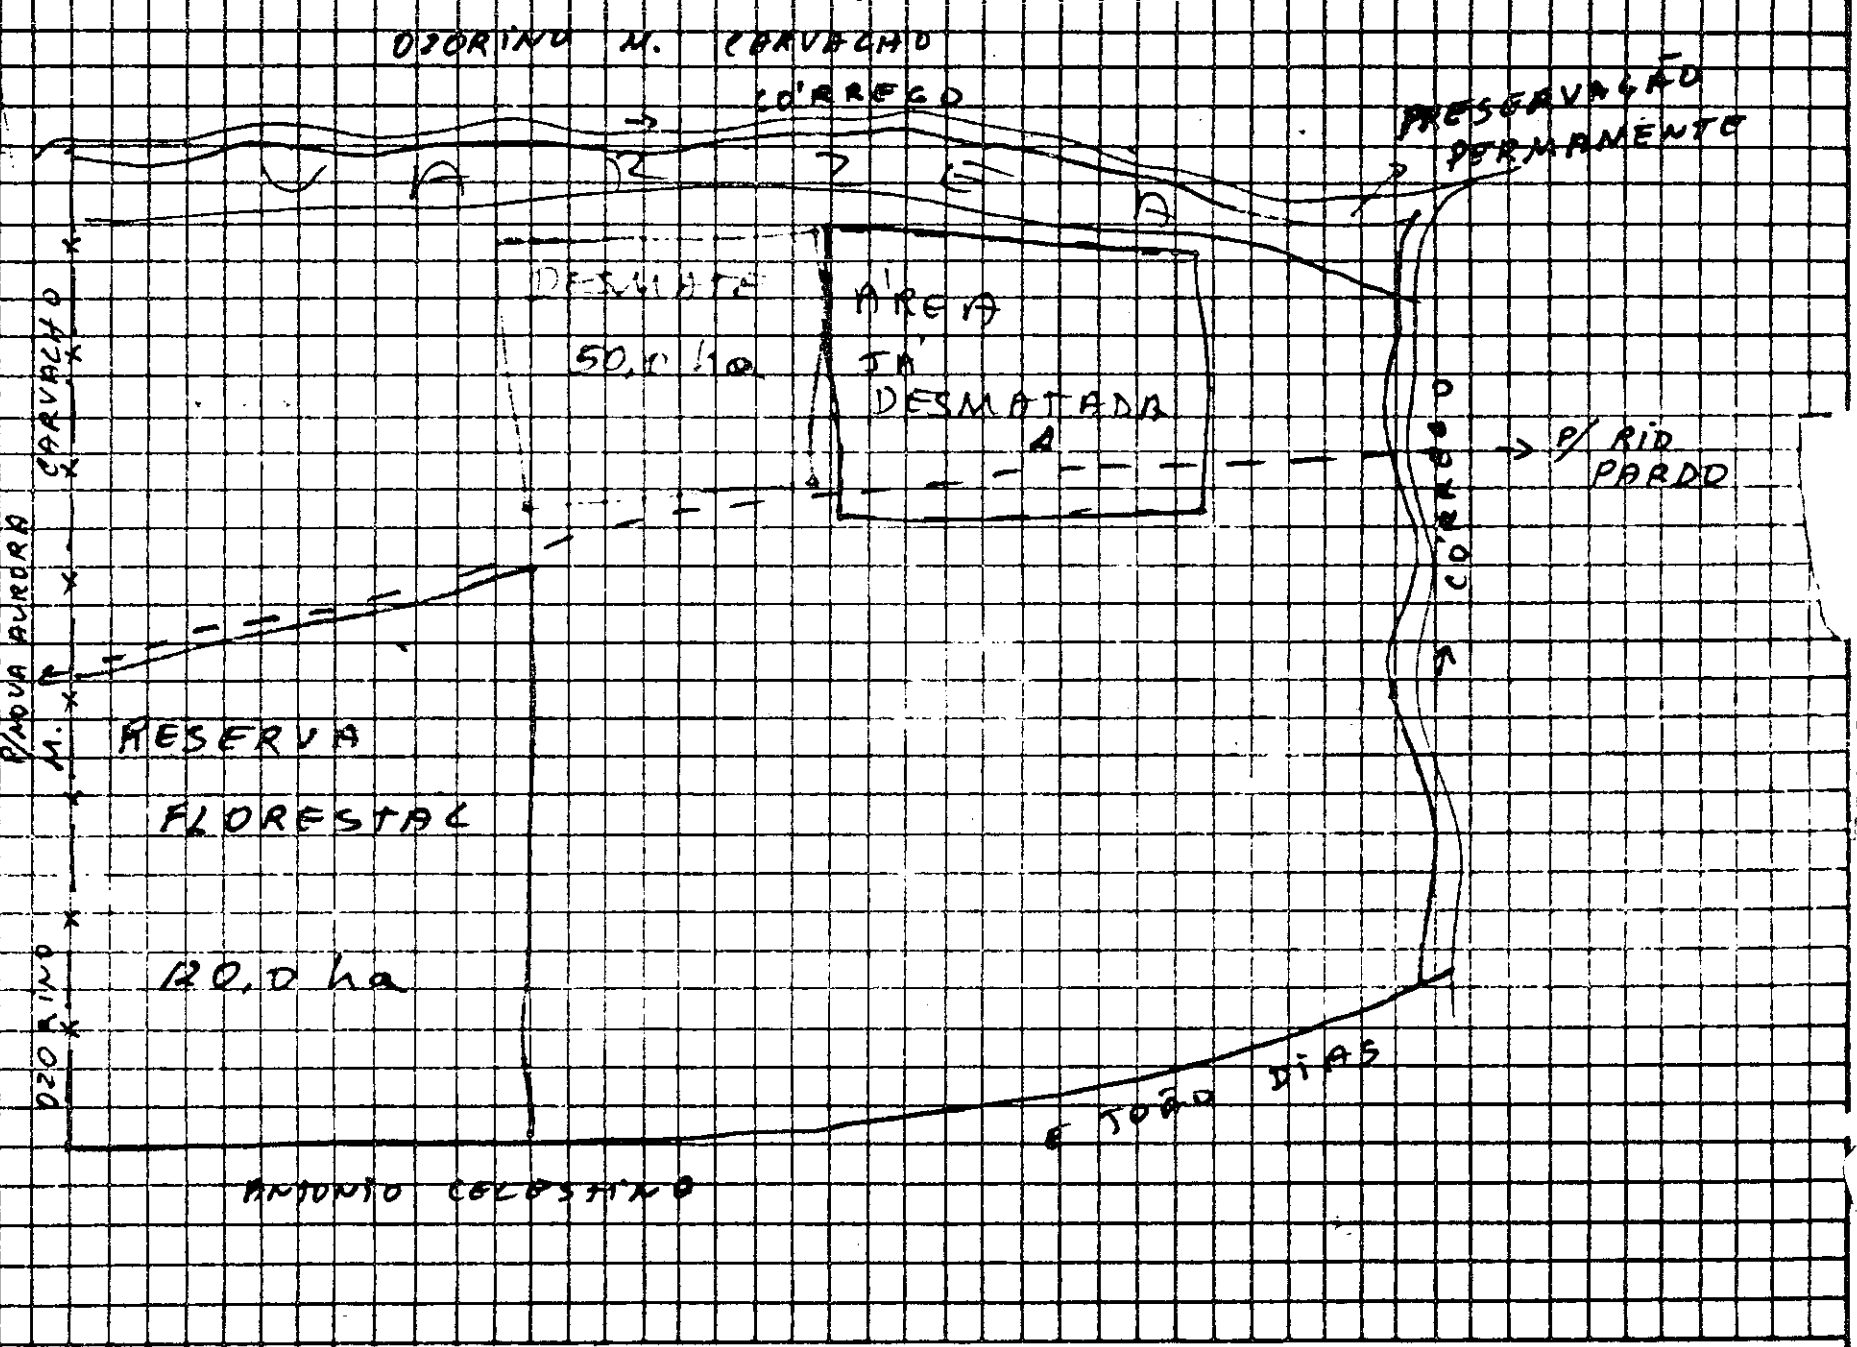 OZORINO M. CARVALHO
CÓRREGO
PRESERVAÇÃO
PERMANENTE
DESMATE
50,0 ha
ÁREA
JÁ
DESMATADA
P/ RIO
PARDO
CÓRREGO
P/NOVA AURORA
OZORINO M. CARVALHO
RESERVA
FLORESTAL
120,0 ha
ANTONIO CELESTINO
E JOÃO DIAS